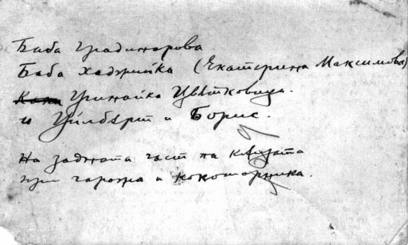 Баба Градинарова
Баба хаджийка (Екатерина Максимова)
Цвѣтковица.
и Уйлбърт и Борис.
На задната част на къщата
при гаража и кокошарника.